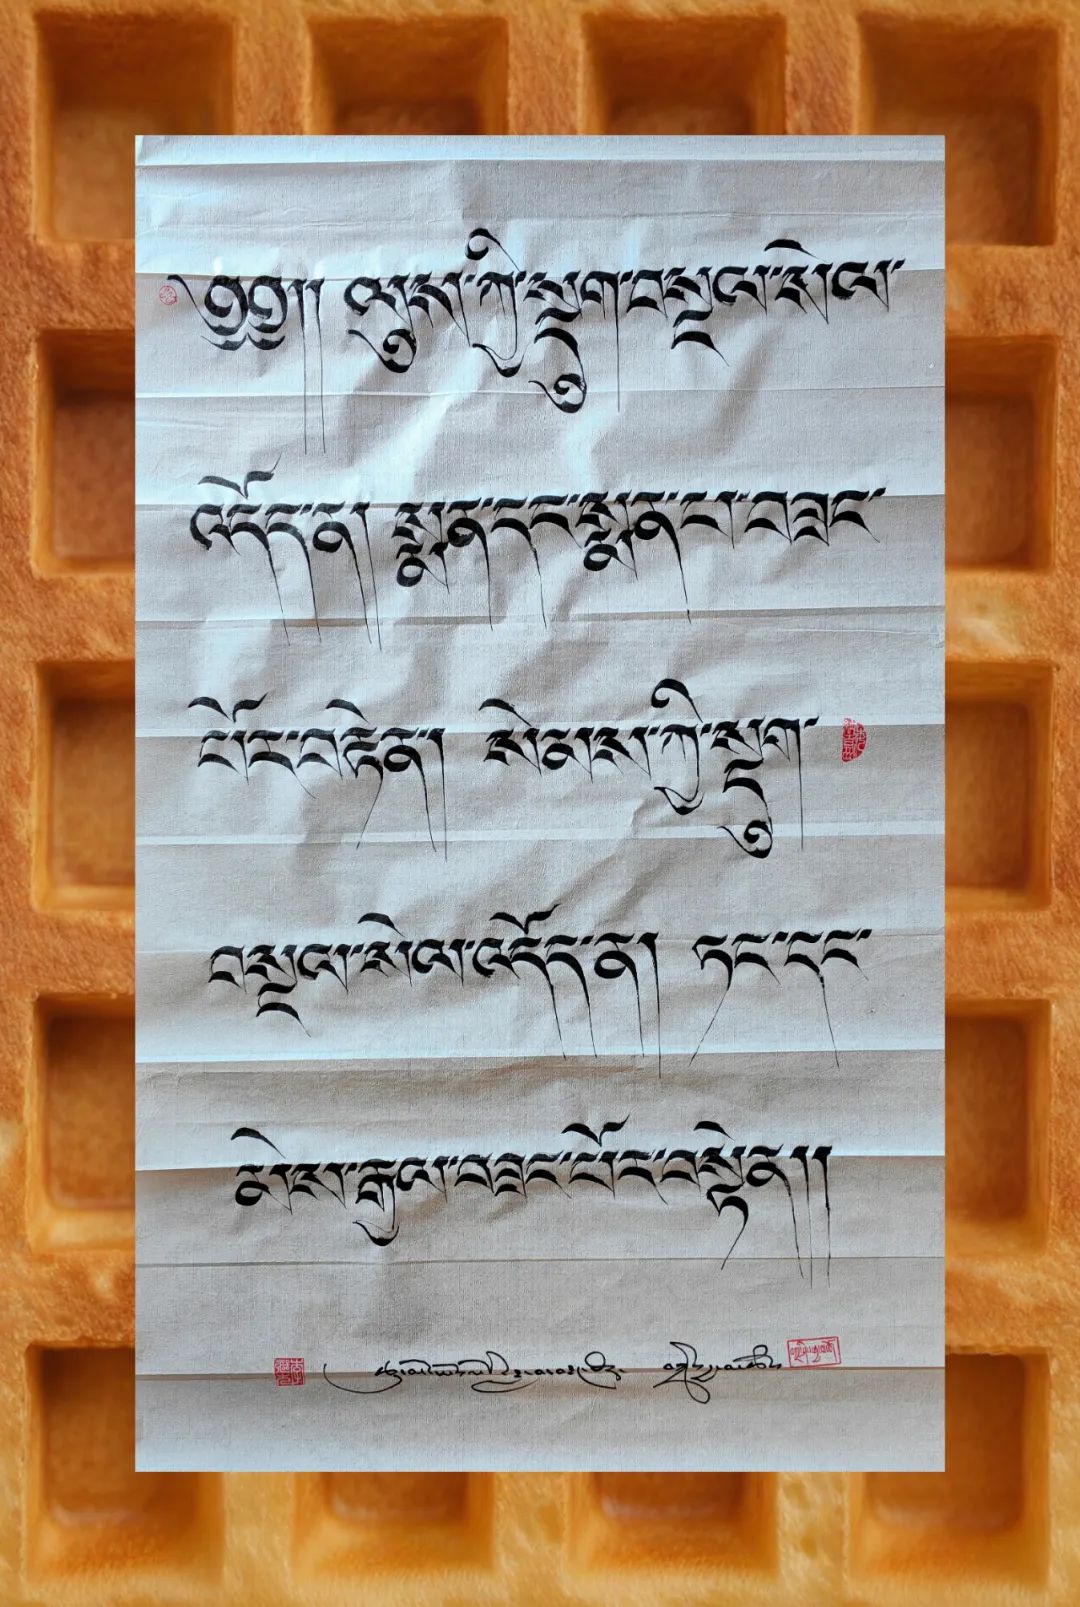 ༄༅།། ལུས་ཀྱི་སྡུག་བསྔལ་སེལ་
འདོད་ན། སྨན་དང་སྨན་པ་བཟང་
པོར་བརྟེན། སེམས་ཀྱི་སྡུག་
བསྔལ་སེལ་འདོད་ན། ཏང་དང་
མེས་རྒྱལ་བཟང་པོར་བསྟེན།།